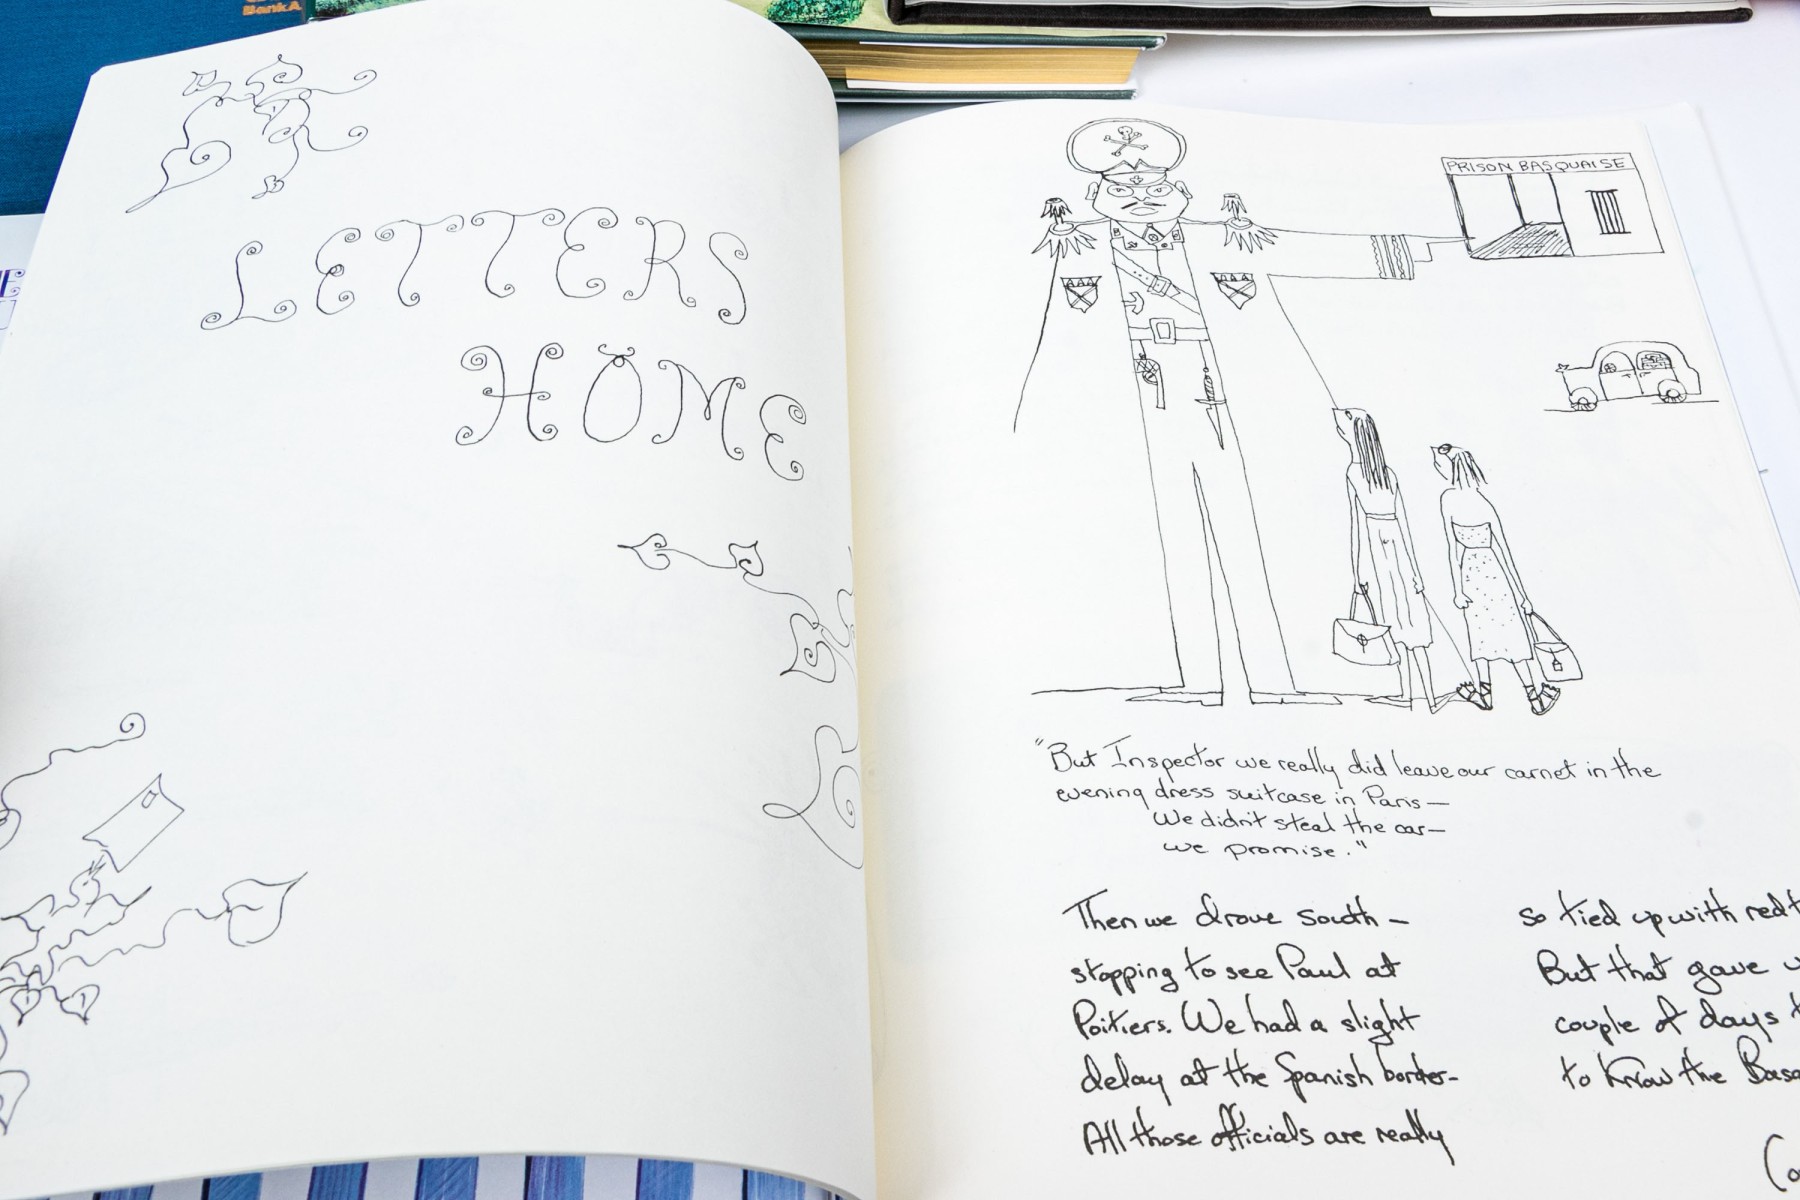 BankA
LETTERS
HOME
PRISON BASQUAISE
"But Inspector we really did leave our carnet in the
evening dress suitcase in Paris—
We didn't steal the car—
we promise."
Then we drove south —
stopping to see Paul at
Poitiers. We had a slight
delay at the Spanish border-
All those officials are really
so tied up with red
But that gave
couple of days
to know the